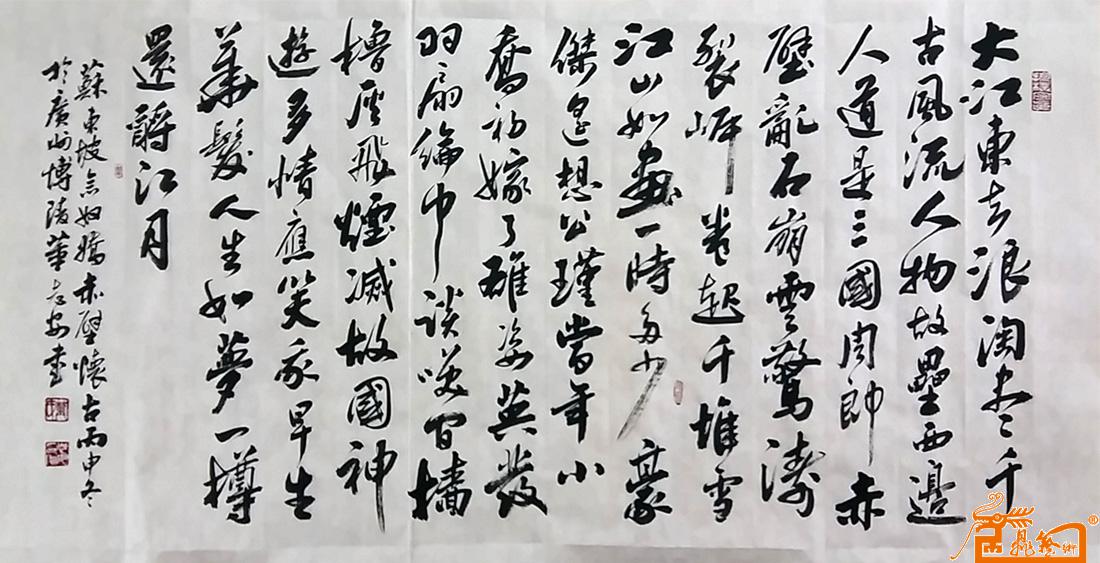 大江東去浪淘盡千
古風流人物故壘西邊
人道是三國周郎赤
壁亂石崩雲驚濤
裂岸卷起千堆雪
江山如畫一時多少豪
傑遙想公瑾當年小
喬初嫁了雄姿英發
羽扇綸巾談笑間檣
櫓灰飛煙滅故國神
遊多情應笑我早生
華髮人生如夢一樽
還酹江月
蘇東坡念奴嬌赤壁懷古丙申冬
於廣州博陵董